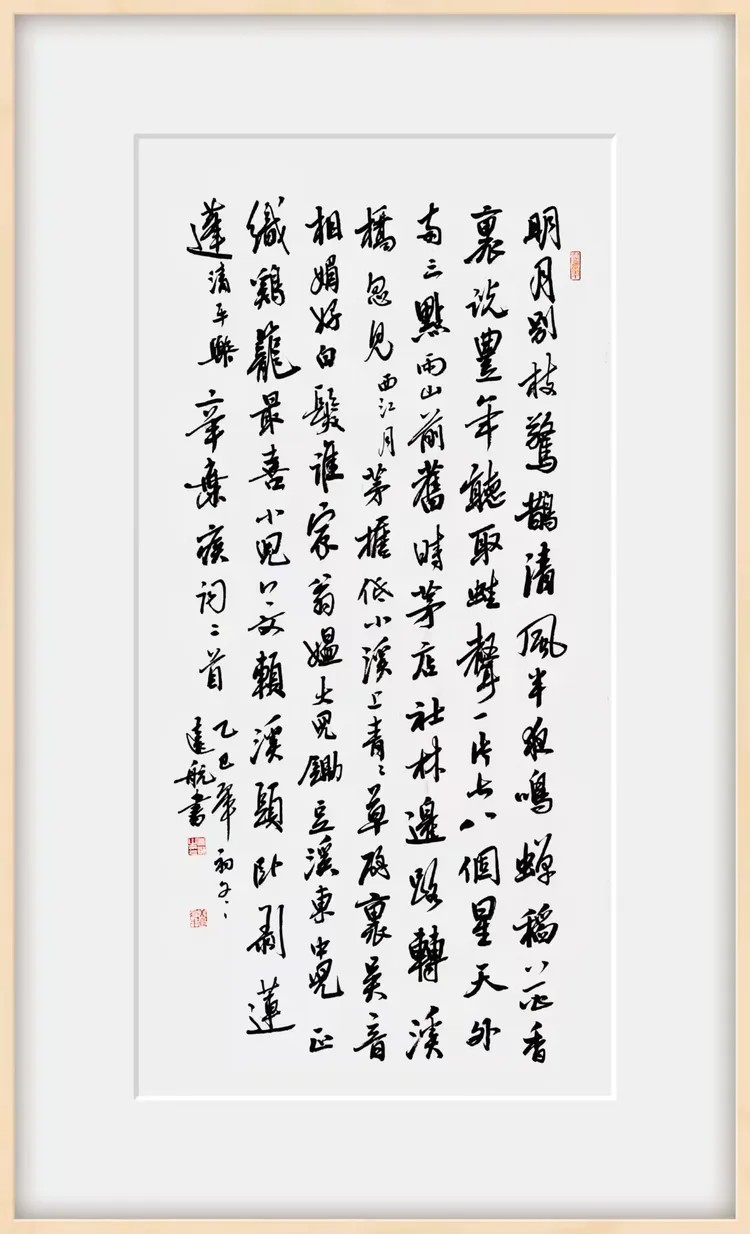 明月别枝驚鵲清風半夜鳴蟬稻花香
裏説豐年聽取蛙聲一片七八個星天外
両三點雨山前舊時茅店社林邊路轉溪
橋忽見西江月茅檐低小溪上青〻草醉裏吴音
相媚好白髮誰家翁媪大兒鋤豆溪東中兒正
織鷄籠最喜小兒無賴溪頭卧剥蓮
蓬清平樂辛棄疾詞二首乙巳年初冬
遠航書